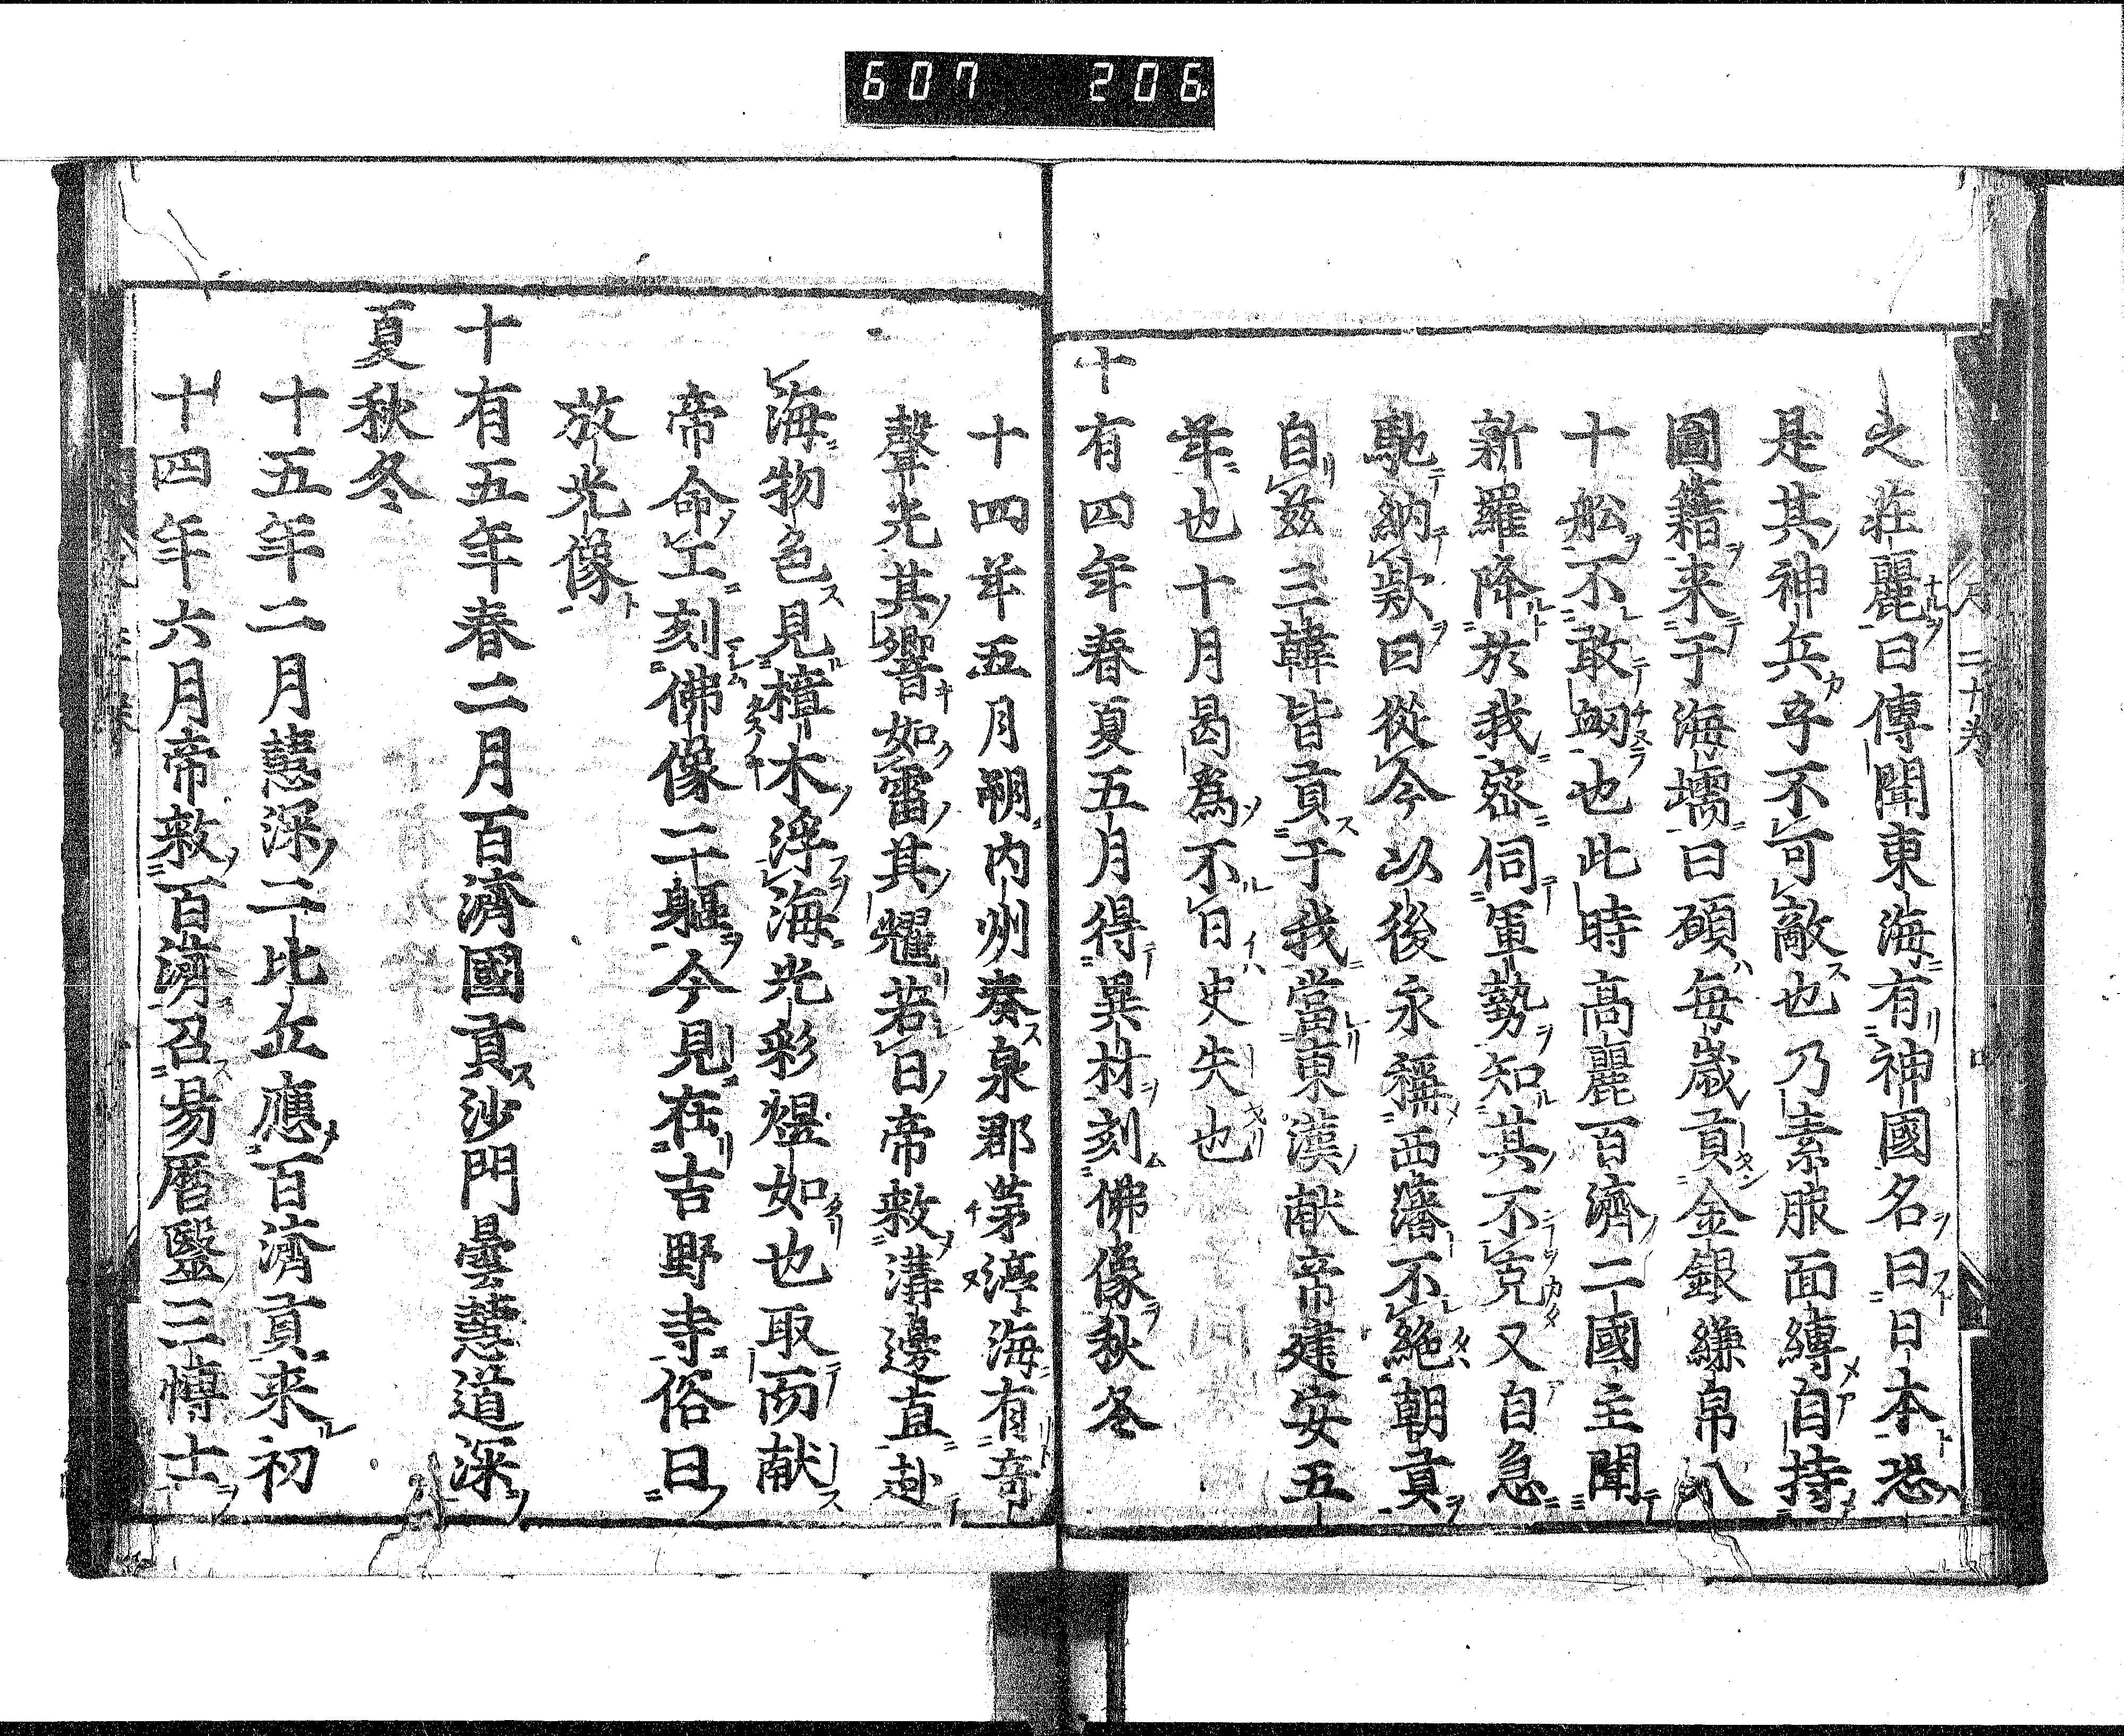 607 206
之莊麗曰傳聞東海有神國名曰日本恐
是其神兵乎不可敵也乃素服面縛自持
圖籍来于海壖曰碩毎歳貢金銀縑帛八
十舩不敢衂也此時高麗百濟二國主聞
新羅降於我密伺軍勢知其不克又自急
馳納欵曰從今以後永稱西藩不絶朝貢
自兹三韓皆貢于我當東漢献帝建安五
年也十月曷為不日史失也
十有四年春夏五月得異材刻佛像秋冬
十四年五月朔内州奏泉郡茅渟海有奇
聲光其響如雷其耀若日帝敕溝邊直赴
海物色見樟木浮海光彩煜如也取而献
帝命工刻佛像二軀今見在吉野寺俗曰
放光像
十有五年春二月百濟國貢沙門曇慧道深
夏秋冬
十五年二月慧深二比丘應百濟貢来初
十四年六月帝敕百濟召易暦毉三愽士